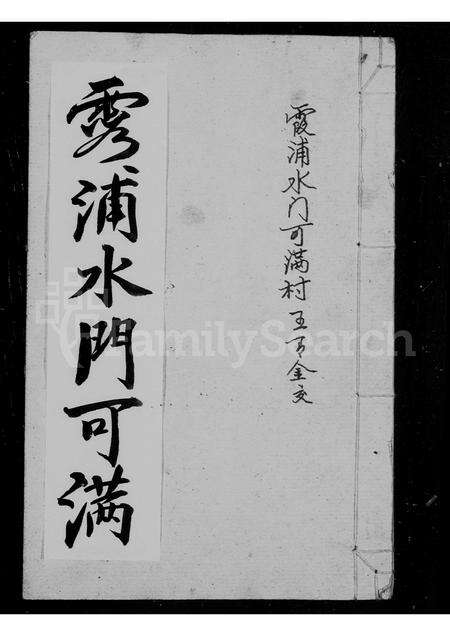 霞浦水门可满村王可金交
霞浦水門可满
FamilySearch